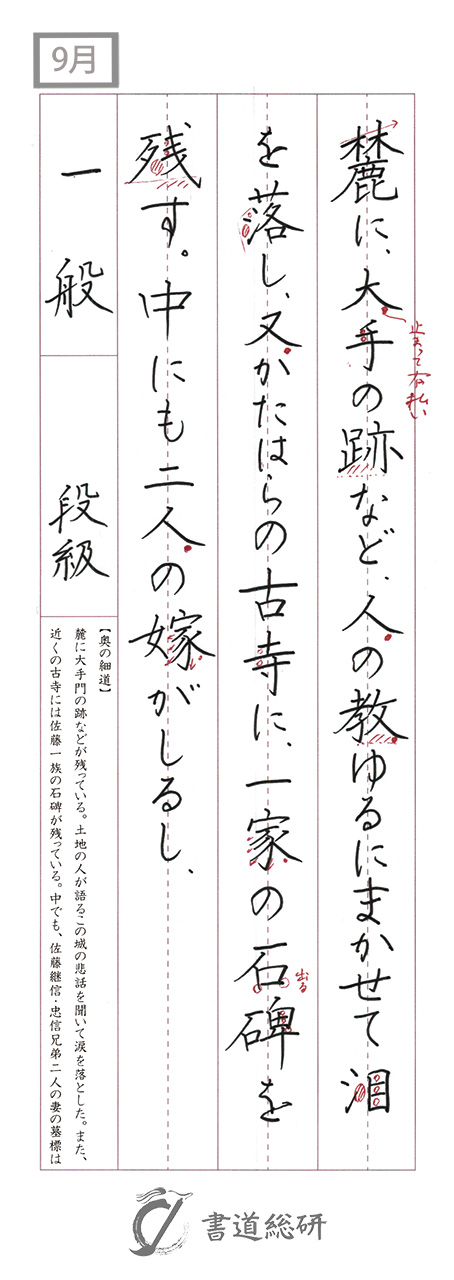 9月
麓に、大手の跡など、人の教ゆるにまかせて泪
止まって右払い
を落し、又かたはらの古寺に、一家の石碑を
出る
残す。中にも二人の嫁がしるし、
一般
段級
【奥の細道】
麓に大手門の跡などが残っている。土地の人が語るこの城の悲話を聞いて涙を落とした。また、
近くの古寺には佐藤一族の石碑が残っている。中でも、佐藤継信・忠信兄弟二人の妻の墓標は
書道総研